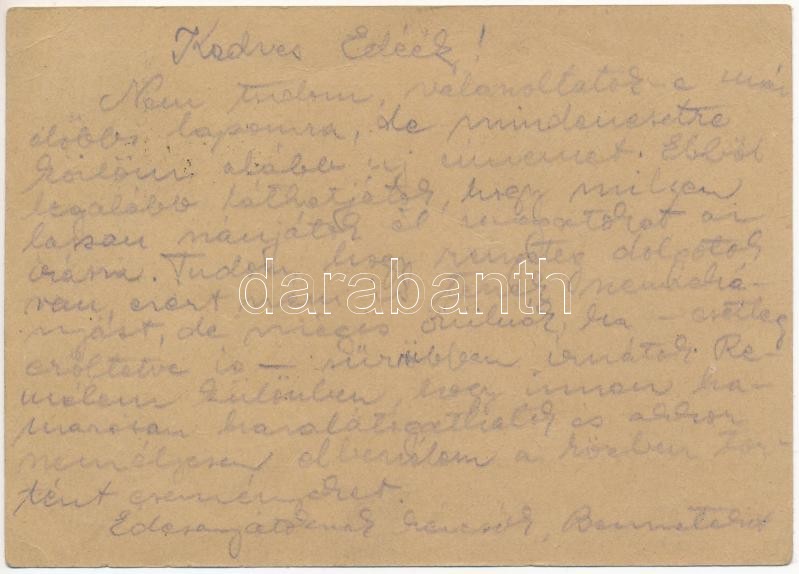 Kedves Edéék!
Nem tudom, válaszoltatok-e már
előbbi lapomra, de mindenesetre
közlöm alább új címemet. Ebből
legalább láthatjátok, hogy milyen
lassan szánjátok el magatokat az
írásra. Tudom, hogy rengeteg dolgotok
van, ezért nem is teszek szemrehá-
nyást, de mégis örülnék, ha – esetleg
erőltetve is – sűrűbben írnátok. Re-
mélem különben, hogy innen ha-
marosan hazalátogathatok és akkor
személyesen elbeszélem a közben tör-
tént eseményeket.
Édesanyátoknak kézcsók,
darabanth